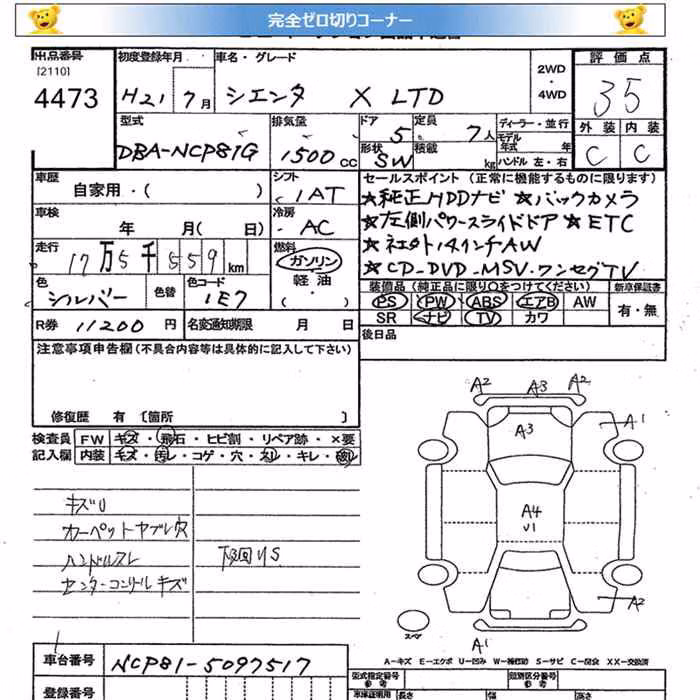 完全ゼロ切りコーナー
出品番号
[2110]
4473
初度登録年月
H21 7月
車名・グレード
シエンタ X LTD
2WD
・
4WD
評価点
35
外装 内装
C C
型式
DBA-NCP81G
排気量
1500 cc
ドア
5
定員
7人
形状
SW
積載
kg
ディーラー・並行
モデル年式 年
ハンドル 左・右
車歴
自家用・( )
シフト
IAT
セールスポイント(正常に機能するものに限ります)
★純正HDDナビ ★バックカメラ
★左側パワースライドドア ★ETC
★ネエタト14インチAW
★CD-DVD-MSV-ワンセグTV
車検
年 月( 日)
冷房
AC
走行
17万5千559km
燃料
ガソリン
軽油
・
色
シルバー
色替
色コード
1E7
装備品(純正品に限り○をつけてください)
PS PW ABS エアB AW
SR ナビ TV カワ
新車保証書
有・無
R券 11200円
名変通知期限 月 日
後日品
注意事項申告欄(不具合内容等は具体的に記入して下さい)
修復歴 有〔箇所 〕
検査員
記入欄
FW キズ・飛石・ヒビ割・リペア跡・×要
内装 キズ・汚レ・コゲ・穴・スレ・キレ・破レ
キズU
カーペットヤブレ穴
ハンドルスレ
センターコンソールキズ
下回りS
A2 A3 A2
A3
A1
A4
U1
A2
スペア
A1
A-キズ E-エクボ U-凹み W-補修跡 S-サビ C-腐食 XX-交換済
車台番号 NCP81-5097517
登録番号
型式指定番号
類別区分番号
車庫証明用
長さ
幅
高さ